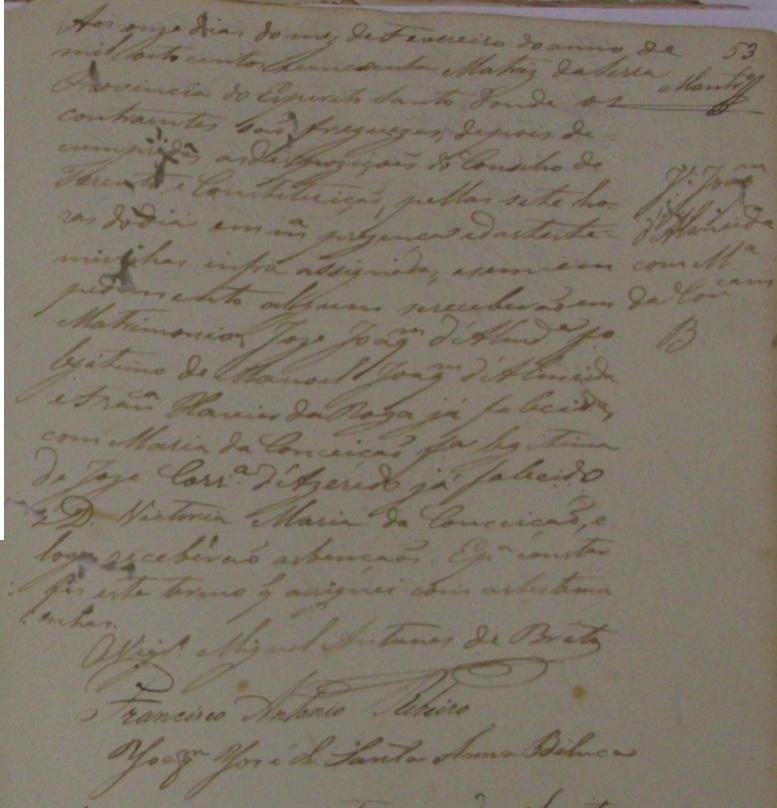 Aos onze dias do mez de Fevereiro do anno de
53
mil oito centos e cincoenta Matriz da Serra
Provincia do Espirito Santo donde os
contraentes são freguezes, depois de
cumpridas as despoziçoẽs do Consilho de
Terento e Constituição, pellas sete ho-
ras do dia em mª presença e das teste-
munhas infra assignadas, e sem em
pedimento algum se receberão em
Matrimonio, Joze Joaqm d'Almdª fo
legitimo de Manoel Joaqm d'Almeida
e Franª da Roza já falecida,
com Maria da Conceição fa legitima
de Joze Corrª d'Azeredo já falecido
e D. Victoria Maria da Conceição, e
logo receberão as bençaos. E pª constar
fis este termo q assignei com as testemu
nhas.
Vigrº Miguel Antunes de Brito
Francisco Antonio Ribeiro
Joaqm José de Santa Anna
Jº Joaqm
d'Almeida
com Mª
da Concam
B